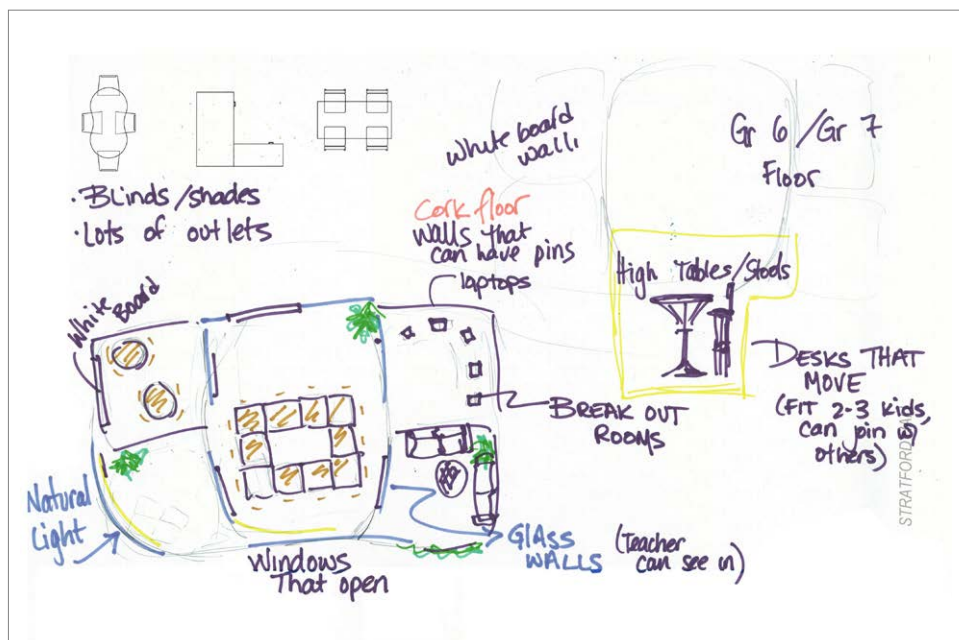 · Blinds/shades
· Lots of outlets
White board
walls
Gr 6/Gr 7
Floor
Cork floor
walls that
can have pins
laptops
High Tables/Stools
White
Board
DESKS THAT
MOVE
(FIT 2-3 kids,
can join w
others)
BREAK OUT
ROOMS
Natural
Light
Windows
That open
GLASS
WALLS
(Teacher
can see in)